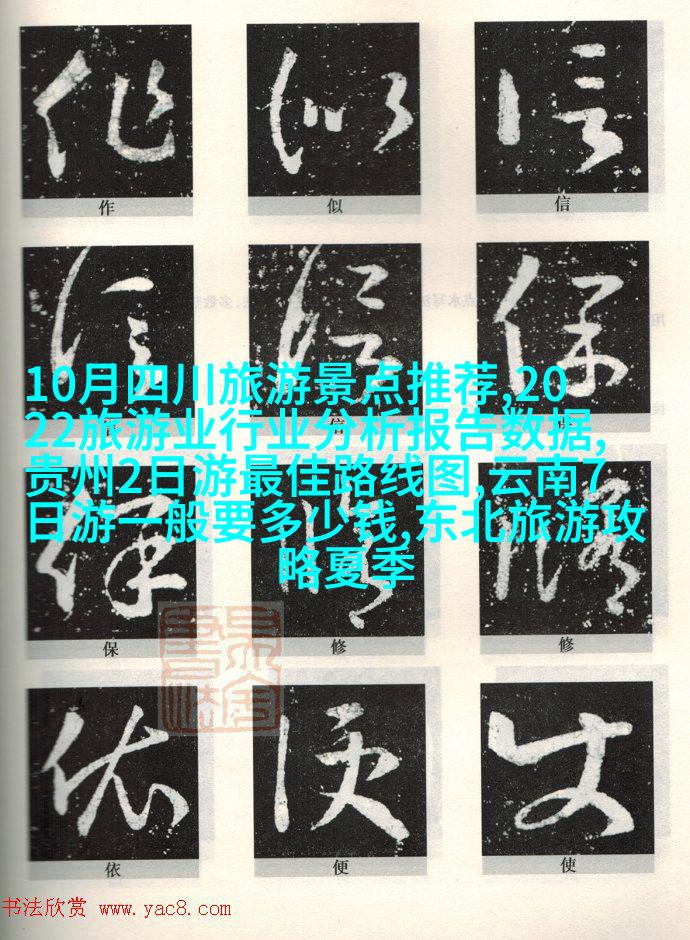 作 似 信
信
保 修 修
依 便 使
10月四川旅游景点推荐,20
22旅游业行业分析报告数据,
贵州2日游最佳路线图,云南7
日游一般要多少钱,东北旅游攻
略夏季
书法欣赏 www.yac8.com